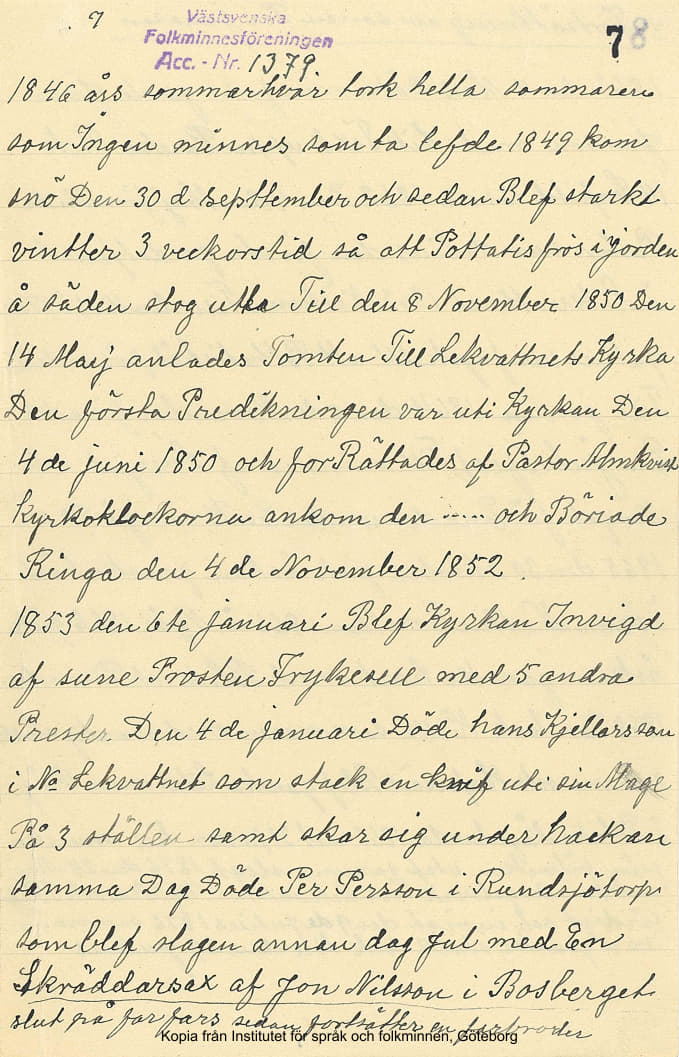 7
Västsvenska
Folkminnesföreningen
Acc. - Nr. 1379
7 8
1846 års sommarhvar tork hella sommaren
som Ingen minnes som ta lefde 1849 kom
snö Den 30 d September och sedan Blef starkt
vintter 3 veckors tid så att Pottatis frös i jorden
å säden stog utte Till den 8 November 1850 Den
14 Maij anlades Tomten Till Lekvattnets Kyrka
Den första Predikningen var uti Kyrkan Den
4 de juni 1850 och forRättades af Pastor Almkvist
Kyrkoklockorna ankom den ..... och Böriade
Ringa den 4 de November 1852
1853 den 6te januari Blef Kyrkan Invigd
af sune Prosten Frykesell med 5 andra
Prester. Den 4 de januari Döde hans Kjellarsson
i No Lekvattnet som stack en knif uti sin Mage
På 3 ställen samt skar sig under hackan
samma Dag Döde Per Persson i Rundsjötorp
som blef slagen annan dag jul med En
Skräddarsax af Jon Nilsson i Bosberget
slut på far fars sedan fortsätter en
Kopia från Institutet för språk och folkminnen, Göteborg